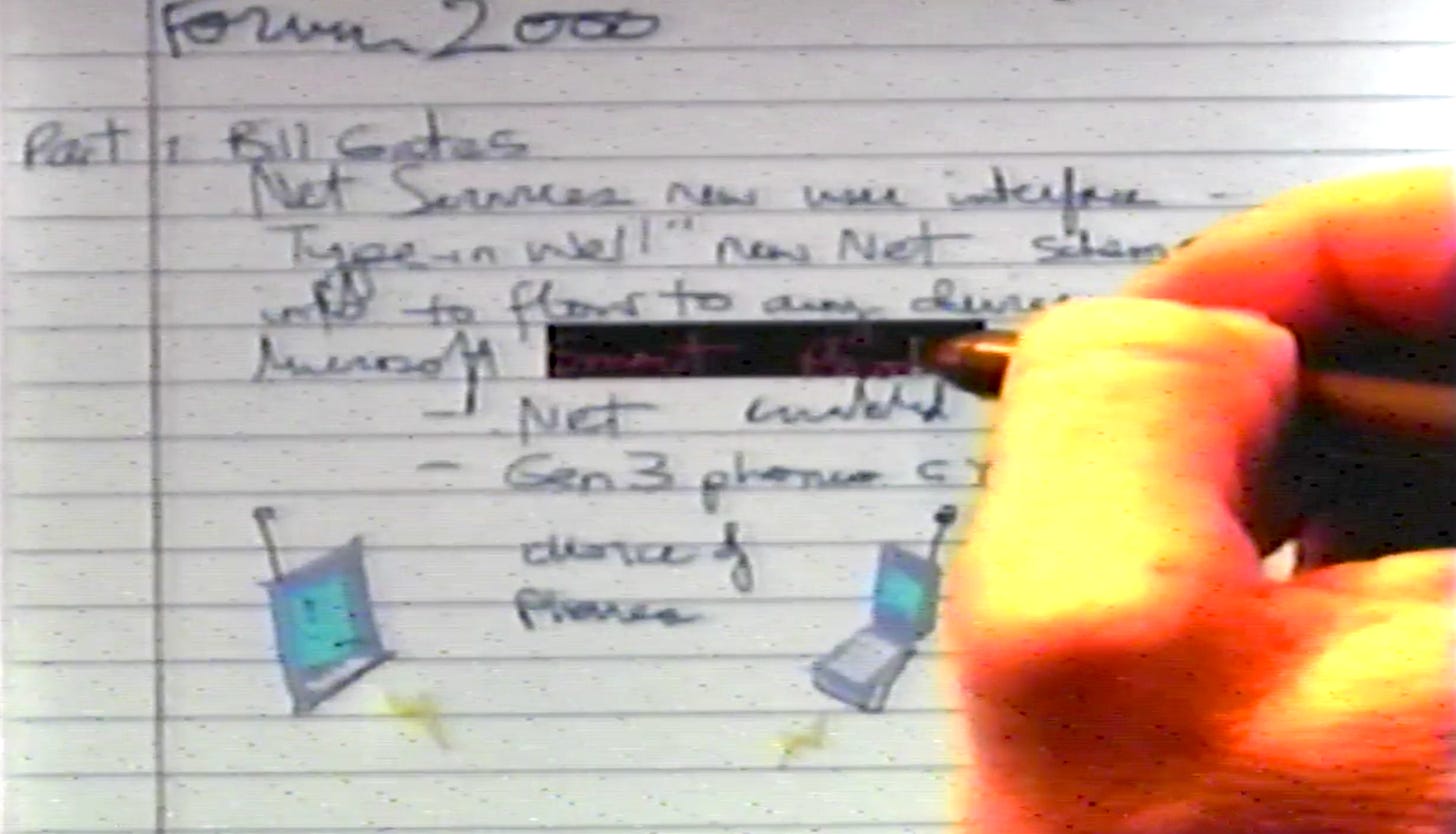 Forum 2000
Part : Bill Gates
Net Services new user interface -
Type-in Well" new Net
info to flow to any device
Microsoft smart
- Net enabled
- Gen 3 phones
device of
Phones